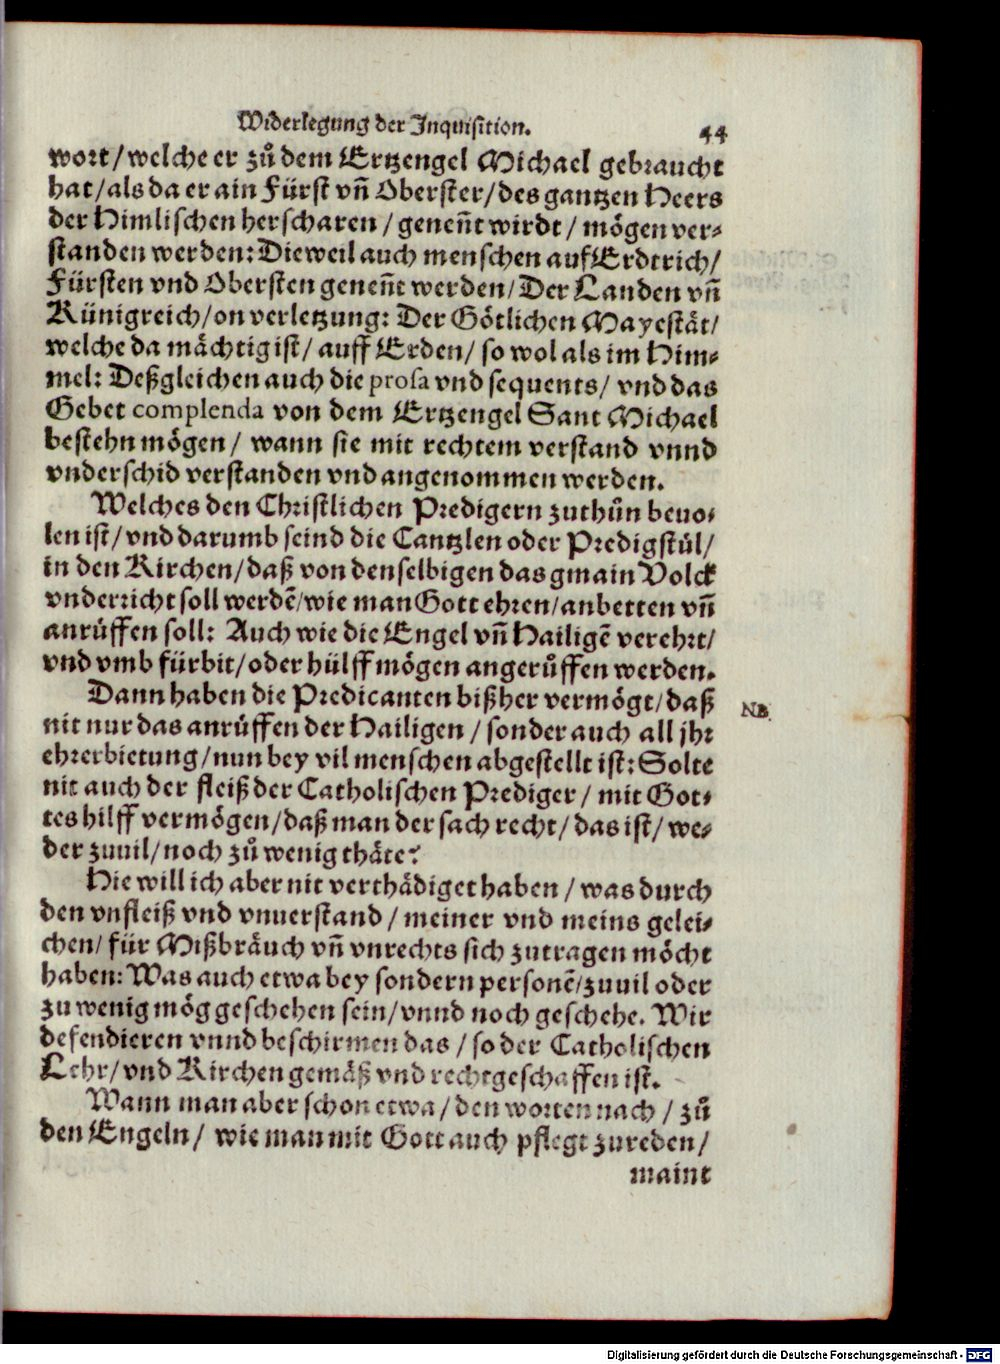 Widerlegung der Inquisition. 44
wort/welche er zů dem Ertzengel Michael gebraucht
hat/als da er ain Fürst vñ Oberster/des gantzen Heers
der Himlischen herscharen/geneñt wirdt/mögen ver⸗
standen werden: Dieweil auch menschen auf Erdtrich/
Fürsten vnd Obersten geneñt werden/Der Landen vñ
Künigreich/on verletzung: Der Götlichen Mayestät/
welche da mächtig ist/auff Erden/so wol als im Him⸗
mel: Deßgleichen auch die prosa vnd sequents/vnd das
Gebet complenda von dem Ertzengel Sant Michael
bestehn mögen/wann sie mit rechtem verstand vnnd
vnderschid verstanden vnd angenommen werden.
Welches den Christlichen Predigern zuthůn beuo⸗
len ist/vnd darumb seind die Cantzlen oder Predigstůl/
in den Kirchen/daß von denselbigen das gmain Volck
vnderricht soll werdẽ/wie man Gott ehren/anbetten vñ
anrůffen soll: Auch wie die Engel vñ Hailigẽ verehrt/
vnd vmb fürbit/oder hülff mögen angerůffen werden.
Dann haben die Predicanten bißher vermögt/daß
nit nur das anrůffen der Hailigen/sonder auch all jhr
ehrerbietung/nun bey vil menschen abgestellt ist: Solte
nit auch der fleiß der Catholischen Prediger/mit Got⸗
tes hilff vermögen/daß man der sach recht/das ist/we⸗
der zuuil/noch zů wenig thäte?
Hie will ich aber nit verthädiget haben/was durch
den vnfleiß vnd vnuerstand/meiner vnd meins gelei⸗
chen/für Mißbräuch vñ vnrechts sich zutragen möcht
haben: Was auch etwa bey sondern personẽ/zuuil oder
zu wenig mög geschehen sein/vnnd noch geschehe. Wir
defendieren vnnd beschirmen das/so der Catholischen
Lehr/vnd Kirchen gemäß vnd rechtgeschaffen ist.
Wann man aber schon etwa/den worten nach/zů
den Engeln/wie man mit Gott auch pflegt zureden/
maint
NB.
Digitalisierung gefördert durch die Deutsche Forschungsgemeinschaft - DFG